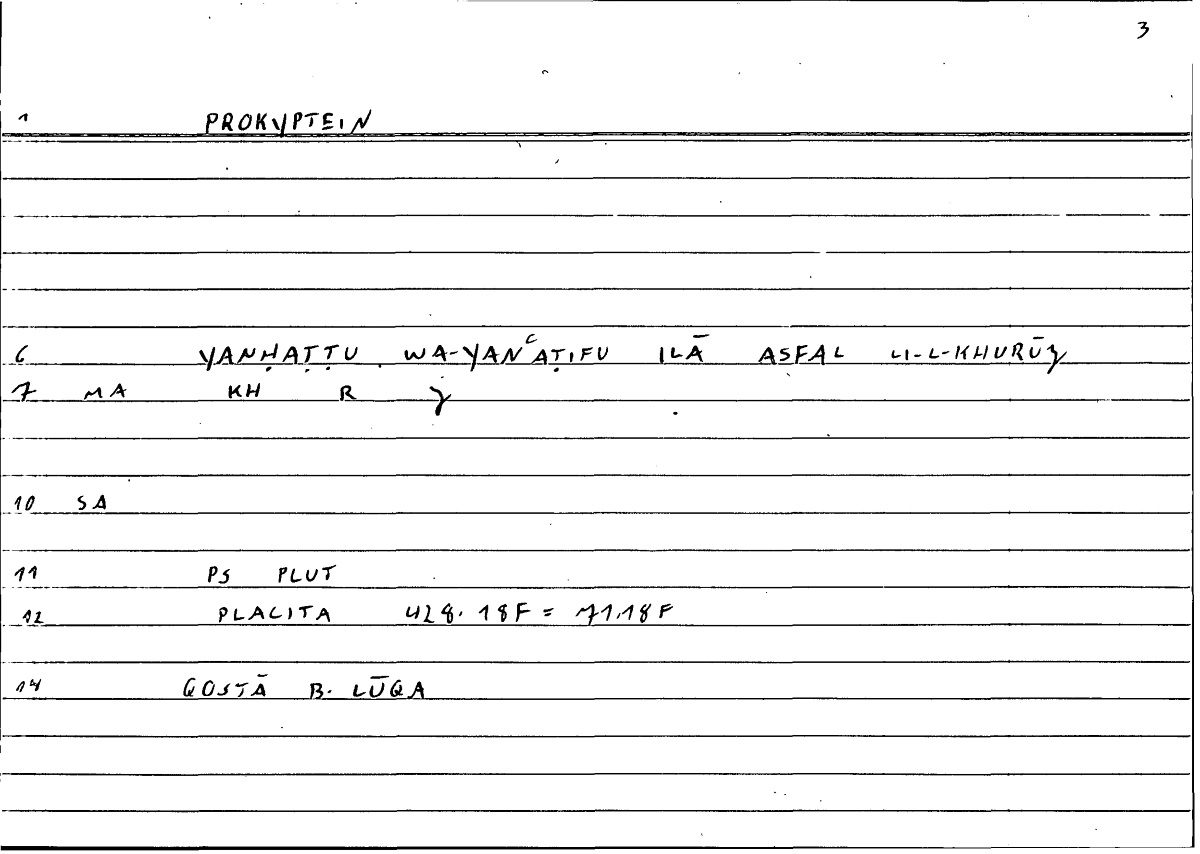 3
1 PROKYPTEIN
6 YANḤAṬṬU WA-YANʿAṬIFU ILĀ ASFAL LI-L-KHURŪȝ
7 MA KH R ȝ
10 SA
11 PS PLUT
12 PLACITA 428.18F = 71.18F
14 QOSTĀ B. LŪQA